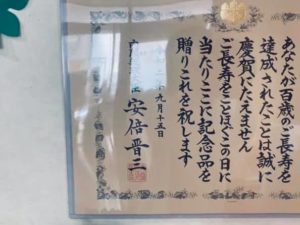 あなたが百歳のご長寿を
達成されたことは誠に
慶賀にたえません
ご長寿をことほぐこの日に
当たりここに記念品を
贈りこれを祝します
九月十五日
安倍晋三